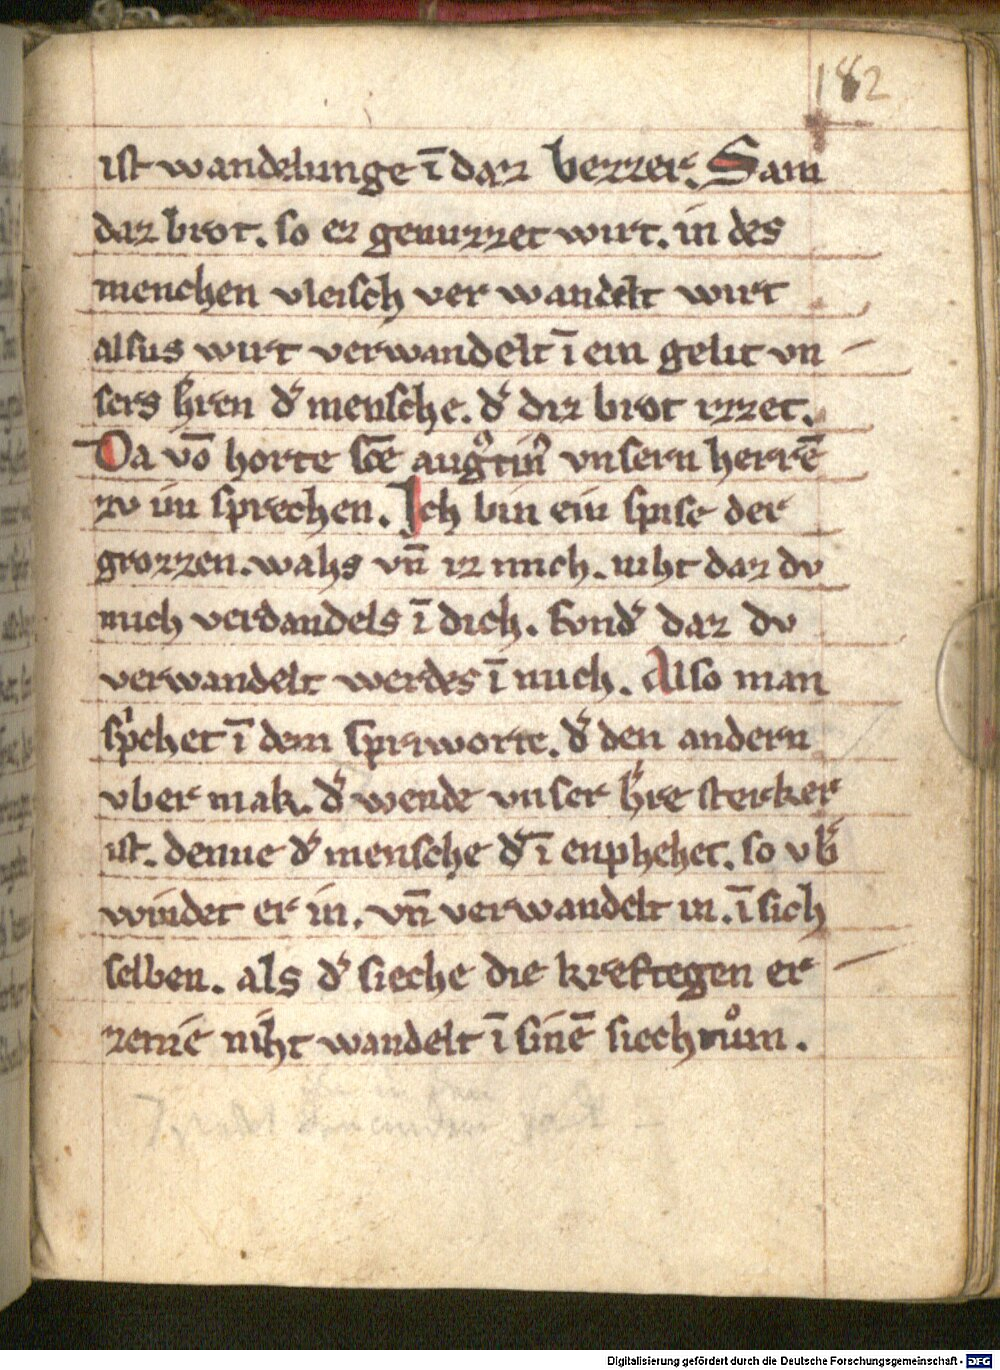 182
ist wandelunge ī daz bezzer. Sam
daz brot. so ez genuzzet wirt. in des
menchen vleisch ver wandelt wirt
alsus wirt verwandelt ī ein gelit vn
sers h̓ren d̓ mensche. d̓ diz brot izzet.
Da vō horte sc̄e augᷤtin᷒ vnsern herrē
zv im sprechen. Ich bin ein spise der
grozzen. wahs vn̄ iz mich. niht daz dv
mich verdandels ī dich. svnd̓ daz dv
verwandelt werdes ī mich. Also man
sp̓chet ī dem spriworte. d̓ den andern
vber mak. d̓ wende vnser h̓re sterker
ist. denne d̓ mensche d̓ ī enphehet. so vb̓
windet er in. vn̄ verwandelt in. ī sich
selben. als d̓ sieche die kreftegen er
zenie niht wandelt ī sinē siechtuͦm.
Digitalisierung gefördert durch die Deutsche Forschungsgemeinschaft - DFG